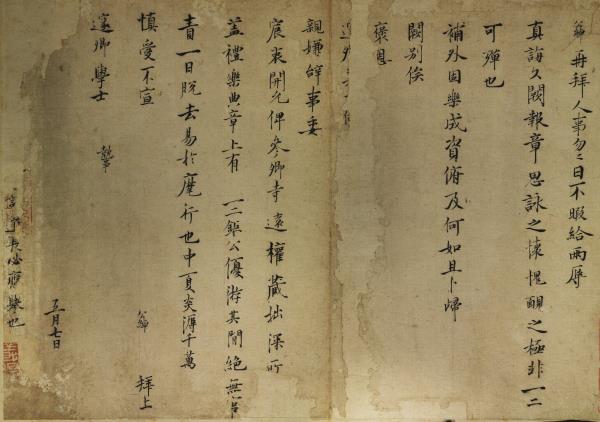 再拜人事勿〻日不暇給兩辱
真誨久闕報章思詠之懷愧靦之極非一二
可殫也
補外固樂成資俯及何如且卜歸
闕別俟
褒恩
親嫌辭事委
宸衷開允俾參卿寺遠權藏拙深所
蓋禮樂典章上有一二鉅公優游其間絕無官
責一日脫去易於麾行也中夏炎溽千萬
慎愛不宣 拜上
邃卿學士
五月七日